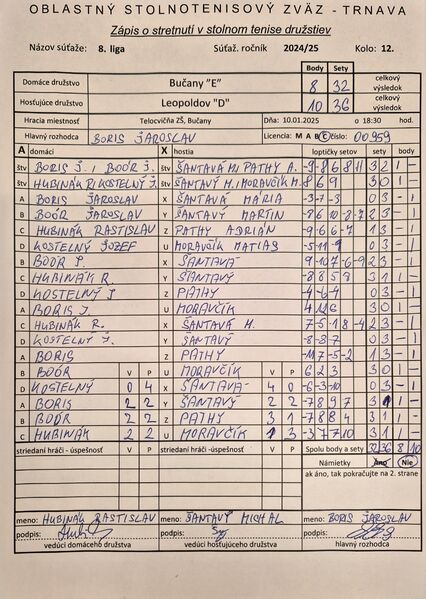 OBLASTNÝ STOLNOTENISOVÝ ZVÄZ - TRNAVA
Zápis o stretnutí v stolnom tenise družstiev
Názov súťaže: 8. liga Súťaž. ročník 2024/25 Kolo: 12.
Body Sety
Domáce družstvo Bučany "E" 8 32 celkový výsledok
Hosťujúce družstvo Leopoldov "D" 10 36 celkový výsledok
Hracia miestnosť Telocvičňa ZŠ, Bučany Dňa: 10.01.2025 o 18:30 hod.
Hlavný rozhodca BORIS JAROSLAV Licencia: M A B C číslo: 00959
A domáci X hostia loptičky setov sety body
štv BORIS J., BOÓR J. štv ŠANTAVÁ M, PATHY A. -9-86811 32 1 -
štv HUBINÁK R, KOSTELNÝ J. štv ŠANTAVÝ M. MORAVČÍK M. 869 30 1 -
A BORIS JAROSLAV X ŠANTAVÁ MÁRIA -3-7-3 03 - 1
B BOÓR JAROSLAV Y ŠANTAVÝ MARTIN -8610-8-7 23 - 1
C HUBINÁK RASTISLAV Z PATHY ADRIÁN -966-7 13 - 1
D KOSTELNÝ JOZEF U MORAVČÍK MATIAS -5-11-9 03 - 1
B BOÓR J X ŠANTAVÁ 9-107-6-9 23 - 1
C HUBINÁK R Y ŠANTAVÝ -8658 31 1 -
D KOSTELNÝ J Z PATHY -4-6-9 03 - 1
A BORIS J U MORAVČÍK 30 1 -
C HUBINÁK R. X ŠANTAVÁ M. 7-518-4 23 - 1
D KOSTELNÝ J. Y ŠANTAVÝ -8-8-7 03 - 1
A BORIS Z PATHY -117-5-2 13 - 1
B BOÓR V P U MORAVČÍK V P 623 30 1 -
D KOSTELNÝ 0 4 X ŠANTAVÁ 4 0 -6-3-10 03 - 1
A BORIS 2 2 Y ŠANTAVÝ 2 2 -7897 31 1 -
B BOÓR 2 2 Z PATHY 3 1 -7884 31 1 -
C HUBINÁK 2 2 U MORAVČÍK 1 3 -37710 31 1 -
striedaní hráči - úspešnosť V P striedaní hráči -úspešnosť V P Spolu body a sety 32 36 8 10
Námietky Áno Nie
ak áno, tak pokračujte na 2. strane
meno: HUBINÁK RASTISLAV meno: ŠANTAVÝ MICHAL meno: BORIS JAROSLAV
podpis: podpis: podpis:
vedúci domáceho družstva vedúci hosťujúceho družstva hlavný rozhodca